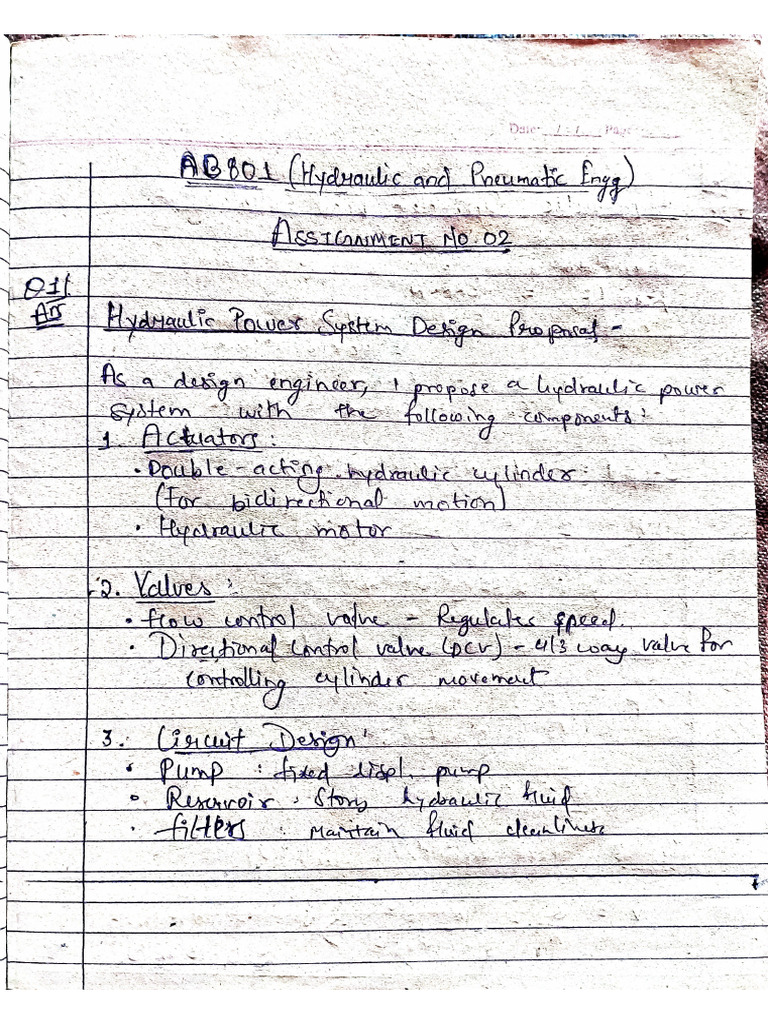 Date: / / Page
AB801 (Hydraulic and Pneumatic Engg)
ASSIGNMENT NO. 02
Q1/.
Ans
Hydraulic Power System Design Proposal -
As a design engineer, I propose a hydraulic power
system with the following components:
1. Actuators:
• Double-acting hydraulic cylinder
(For bidirectional motion)
• Hydraulic motor
2. Valves:
• flow control valve - Regulates speed.
• Directional control valve (DCV) - 4/3 way valve for
controlling cylinder movement
3. Circuit Design:
• Pump : fixed displ. pump
• Reservoir : Story hydraulic fluid
• filters : Maintain fluid cleanliness